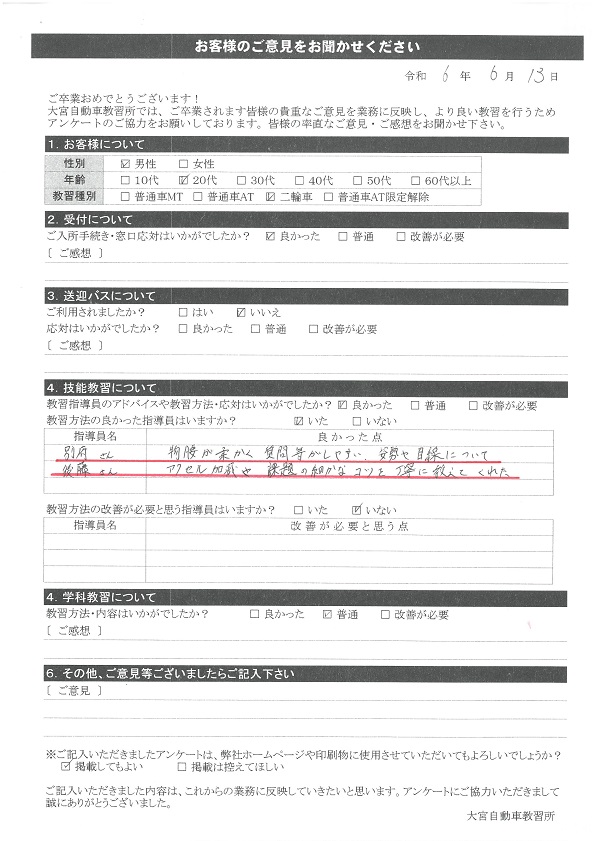 お客様のご意見をお聞かせください
令和 6 年 6 月 13 日
ご卒業おめでとうございます！
大宮自動車教習所では、ご卒業されます皆様の貴重なご意見を業務に反映し、より良い教習を行うため
アンケートのご協力をお願いしております。皆様の率直なご意見・ご感想をお聞かせ下さい。
1．お客様について
性別 ☑ 男性 □ 女性
年齢 □ 10代 ☑ 20代 □ 30代 □ 40代 □ 50代 □ 60代以上
教習種別 □ 普通車MT □ 普通車AT ☑ 二輪車 □ 普通車AT限定解除
2．受付について
ご入所手続き・窓口応対はいかがでしたか？ ☑ 良かった □ 普通 □ 改善が必要
［ ご感想 ］
3．送迎バスについて
ご利用されましたか？ □ はい ☑ いいえ
応対はいかがでしたか？ □ 良かった □ 普通 □ 改善が必要
［ ご感想 ］
4．技能教習について
教習指導員のアドバイスや教習方法・応対はいかがでしたか？ ☑ 良かった □ 普通 □ 改善が必要
教習方法の良かった指導員はいますか？ ☑ いた □ いない
指導員名 良かった点
別府 さん 物腰が柔かく 質問等がしやすい、姿勢や目線について
後藤 さん アクセル加減や 課題の細かなコツを 丁寧に教えてくれた
教習方法の改善が必要と思う指導員はいますか？ □ いた ☑ いない
指導員名 改善が必要と思う点
4．学科教習について
教習方法・内容はいかがでしたか？ □ 良かった ☑ 普通 □ 改善が必要
［ ご感想 ］
6．その他、ご意見等ございましたらご記入下さい
［ ご意見 ］
※ご記入いただきましたアンケートは、弊社ホームページや印刷物に使用させていただいてもよろしいでしょうか？
☑ 掲載してもよい □ 掲載は控えてほしい
ご記入いただきました内容は、これからの業務に反映していきたいと思います。アンケートにご協力いただきまして
誠にありがとうございました。
大宮自動車教習所